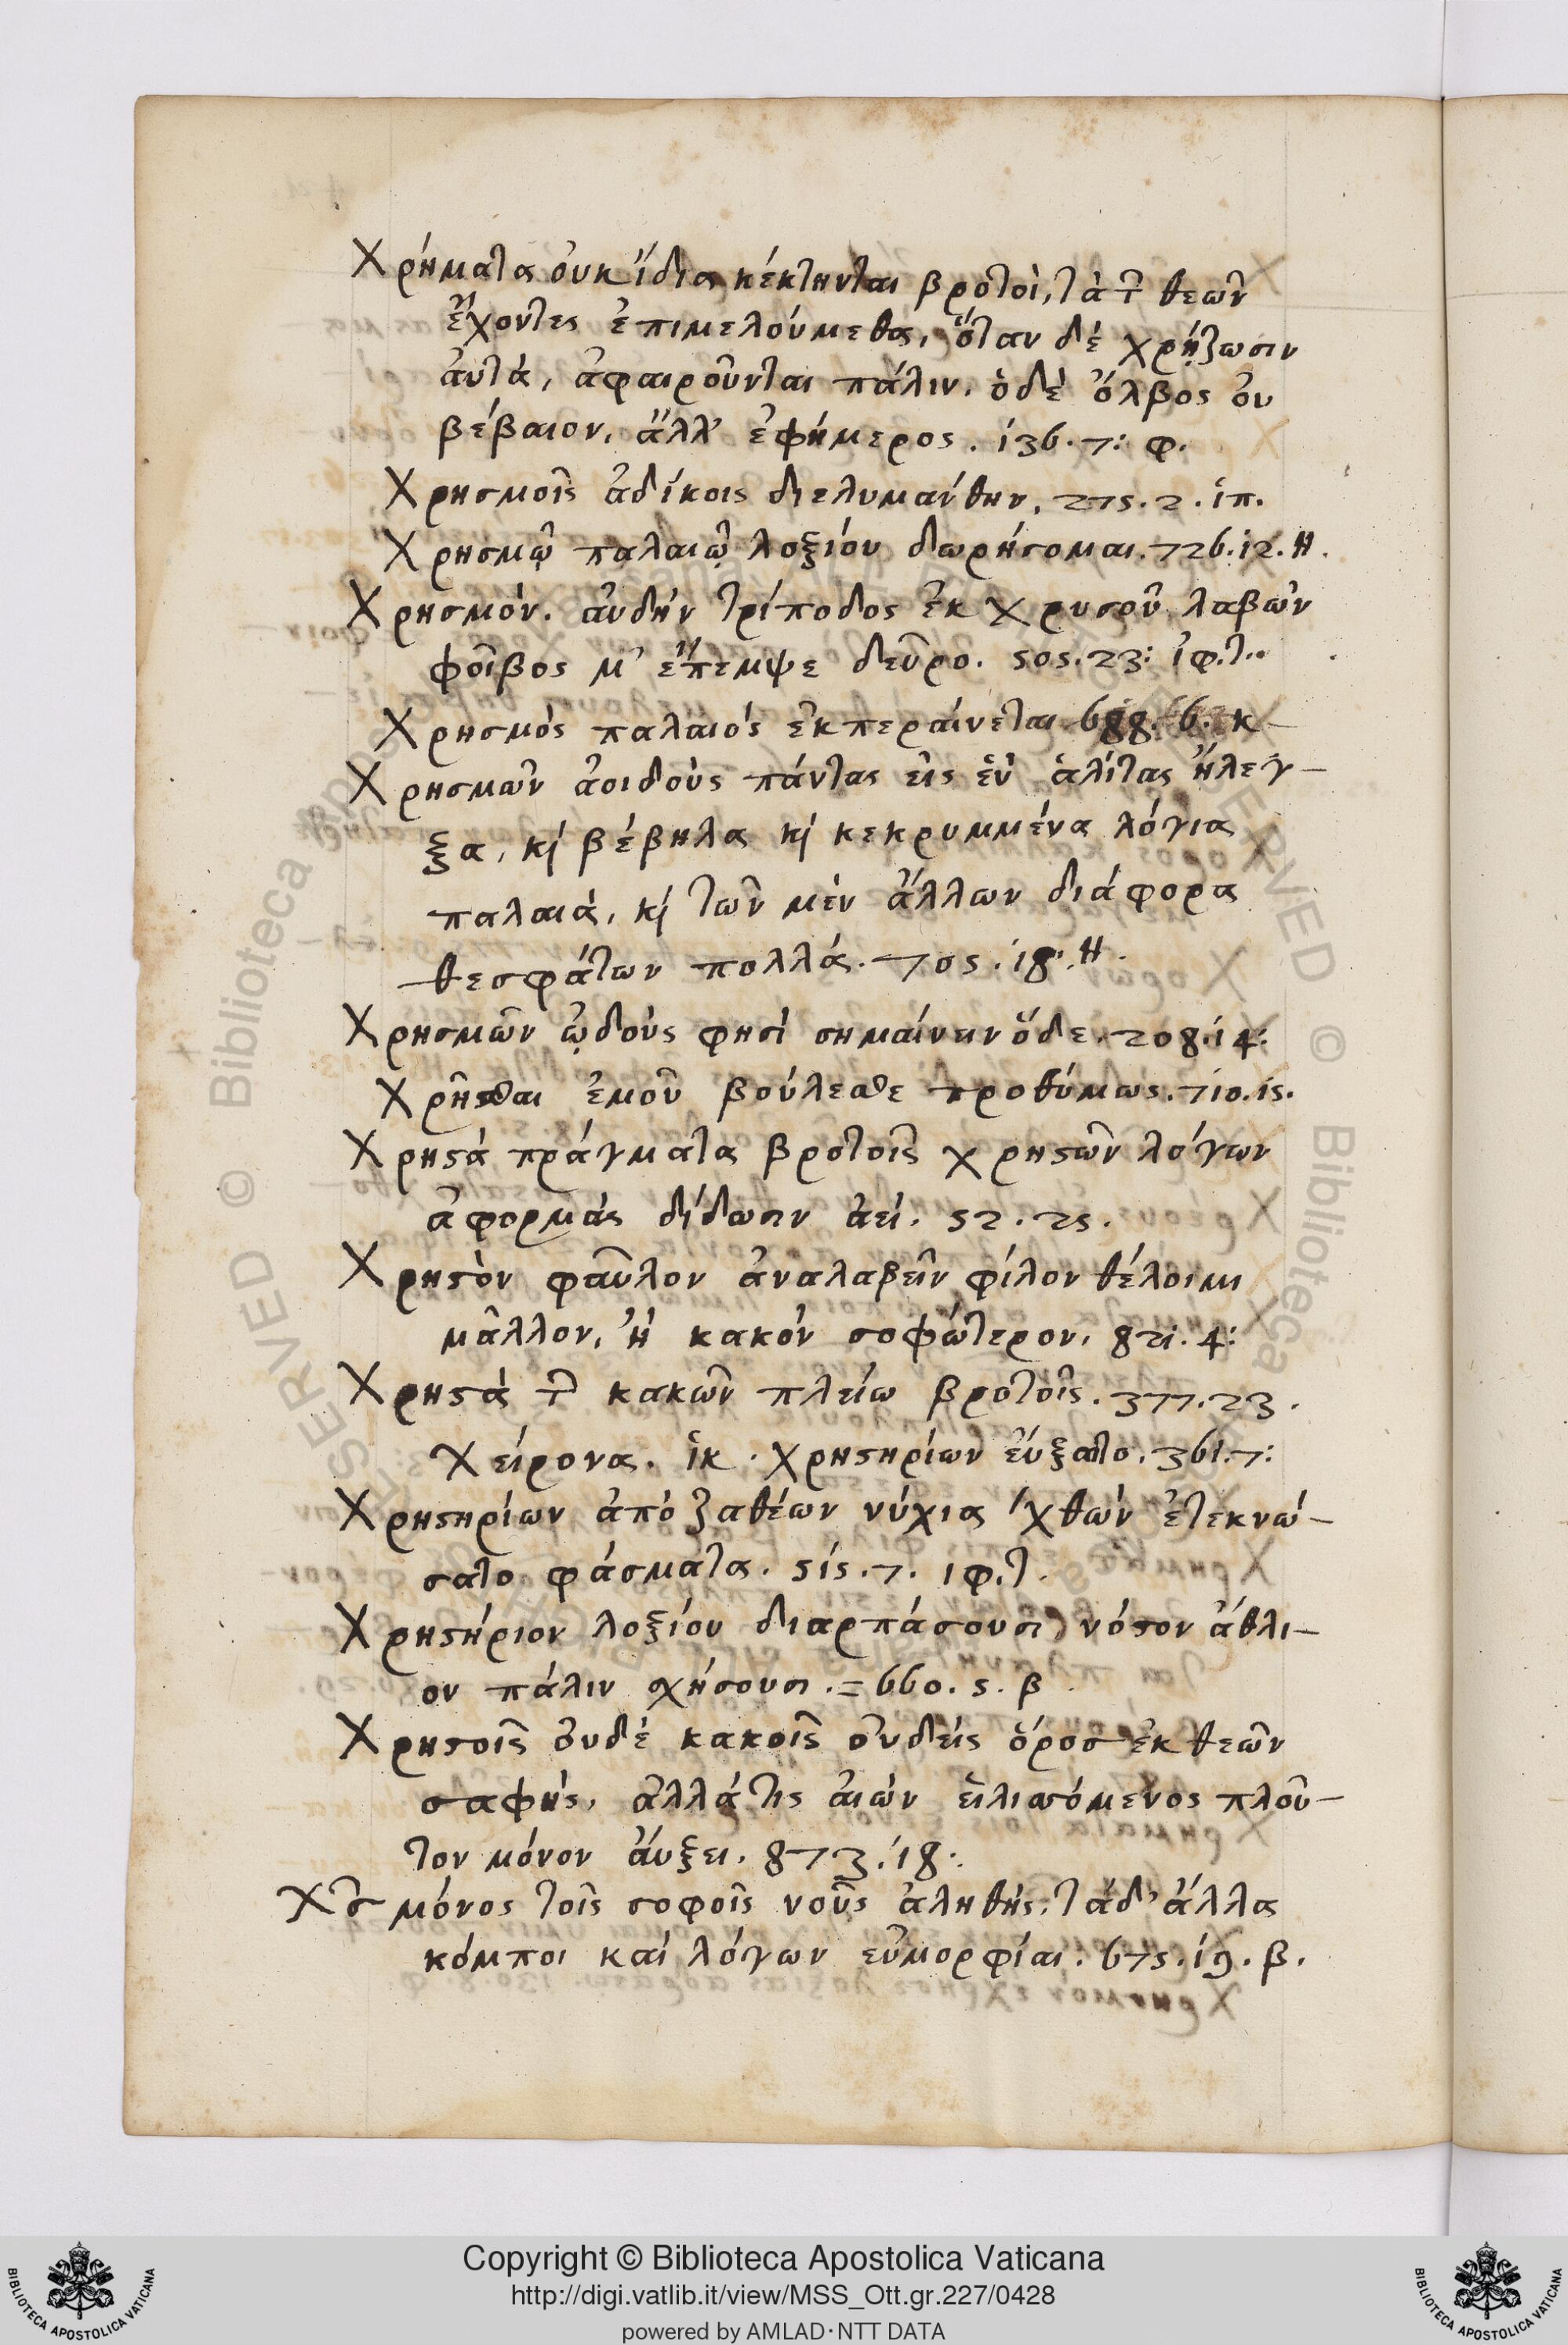 Χρήματα ὀυκ ἴδια κέκτηνται βροτοὶ, τὰ τ͂ θεῶν
ἔχοντες ἐπιμελούμεθα, ὅταν δὲ χρῄζωσιν
ἀυτὰ, ἀφαιροῦνται πάλιν. ὁ δὲ ὄλβος ὀυ
βέβαιον, ἄλλ' ἐφήμερος. 136. 7: φ.
Χρησμοῖς ἀδίκοις διελυμάνθην. 275. 2. ἱπ.
Χρησμῷ παλαιῷ λοξίου δωρήσομαι. 726. 12. Η.
Χρησμὸν. ἀυδὴν τρίποδος ἐκ χρυσοῦ λαβὼν
φοῖβος μ' ἔπεμψε δεῦρο. 505. 23: ἰφ. τ..
Χρησμὸς παλαιὸς ἐκπεραίνεται 688. 6. κ
Χρησμῶν ἀοιδοὺς πάντας εἰς ἓν ἁλίτας ἤλεγ-
ξα, κὶ βέβηλα κὶ κεκρυμμένα λόγια
παλαιὰ, κὶ τῶν μὲν ἄλλων διάφορα
θεσφάτων πολλά. 705. 18. Η.
Χρησμῶν ᾠδοὺς φησὶ σημαίνειν ὅδε. 208. 14:
Χρῆσθαι ἐμοῦ βούλεσθε προθύμως. 710. 15.
Χρηστὰ πράγματα βροτοῖς χρηστῶν λόγων
ἀφορμὰς δίδωσιν ἀεί. 52. 25.
Χρηστὸν φαῦλον ἀναλαβεῖν φίλον θέλοιμι
μᾶλλον, ἢ κακὸν σοφώτερον. 821. 4:
Χρηστὰ τ͂ κακῶν πλείω βροτοῖς. 377. 23.
χείρονα. ἱκ. χρηστηρίων ἐύξατο. 361. 7:
Χρηστηρίων ἀπὸ ζαθέων νύχια χθὼν ἐτεκνώ-
σατο φάσματα. 515. 7. ἰφ. τ.
Χρηστήριον λοξίου διαρπάσουσι, νόστον ἄθλι-
ον πάλιν σχήσουσι. = 660. 5. β
Χρηστοῖς ὀυδὲ κακοῖς ὀυδεὶς ὅρος ἐκ θεῶν
σαφὴς, ἀλλά τις ἀιὼν εἱλισσόμενος πλοῦ-
τον μόνον ἄυξει. 873. 18.
μόνος τοῖς σοφοῖς νοῦς ἀληθής: τάδ' ἄλλα
κόμποι καὶ λόγων εὐμορφίαι. 675. 19. β.
Copyright © Biblioteca Apostolica Vaticana
http://digi.vatlib.it/view/MSS_Ott.gr.227/0428
powered by AMLAD·NTT DATA